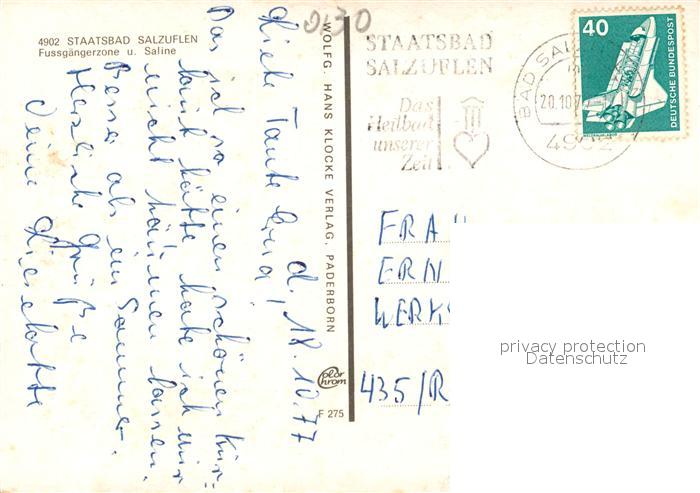 0,30
4902 STAATSBAD SALZUFLEN
Fussgängerzone u. Saline
d. 18.10.77
Liebe Tante Erna!
Das ich so einen schönen Kur-
laub hätte habe ich mir
nicht träumen lassen.
Besser als im Sommer.
Herzliche Grüße
Deine Lieselotte
WOLFG. HANS KLOCKE VERLAG, PADERBORN
Color Chrom
F 275
STAATSBAD
SALZUFLEN
Das
Heilbad
unserer
Zeit
BAD SAL
20.10.7
4902
40
DEUTSCHE BUNDESPOST
WELTRAUMLABOR
FRA
ERN
WERKS
435/R
privacy protection
Datenschutz